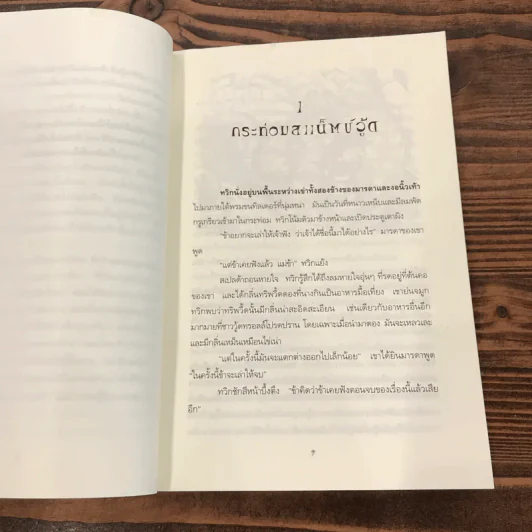 1
กระท่อมสแน็ทช์วู้ด
ทวิกนั่งอยู่บนพื้นระหว่างเข่าทั้งสองข้างของมารดาและงอนิ้วเท้า
ไปมาภายใต้พรมขนทิลเดอร์ที่นุ่มหนา มันเป็นวันที่หนาวเหน็บและมีลมพัด
กรูเกรียวเข้ามาในกระท่อม ทวิกโน้มตัวมาข้างหน้าและเปิดประตูเตาผิง
"ข้าอยากจะเล่าให้เจ้าฟัง ว่าเจ้าได้ชื่อนี้มาได้อย่างไร" มารดาของเขา
พูด
"แต่ข้าเคยฟังแล้ว แม่ข้า" ทวิกแย้ง
สเปลด้าถอนหายใจ ทวิกรู้สึกได้ถึงลมหายใจอุ่นๆ ที่รดอยู่ที่ต้นคอ
ของเขา และได้กลิ่นทริพวี้ดดองที่นางกินเป็นอาหารมื้อเที่ยง เขาย่นจมูก
ทวิกพบว่าทริพวี้ดนั้นมีกลิ่นน่าสะอิดสะเอียน เช่นเดียวกับอาหารอื่นอีก
มากมายที่ชาววู้ดทรอลล์โปรดปราน โดยเฉพาะเมื่อนำมาดอง มันจะเหลวเละ
และมีกลิ่นเหม็นเหมือนไข่เน่า
"แต่ในครั้งนี้มันจะแตกต่างออกไปเล็กน้อย" เขาได้ยินมารดาพูด
"ในครั้งนี้ข้าจะเล่าให้จบ"
ทวิกชักสีหน้าบึ้งตึง "ข้าคิดว่าข้าเคยฟังตอนจบของเรื่องนี้แล้วเสีย
อีก"